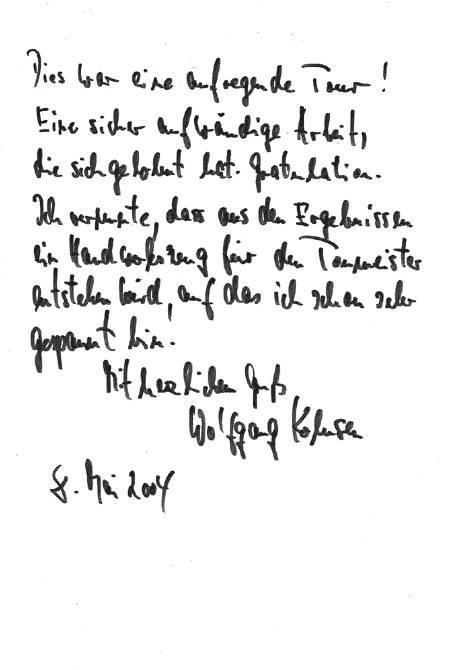 Dies war eine aufregende Tour!
Eine sicher aufwändige Arbeit,
die sich gelohnt hat. Gratulation.
Ich vermute, dass aus den Ergebnissen
ein Handwerkszeug für den Tonmeister
entstehen wird, auf das ich schon sehr
gespannt bin.
Mit herzlichem Gruß
Wolfgang
8. Mai 2004